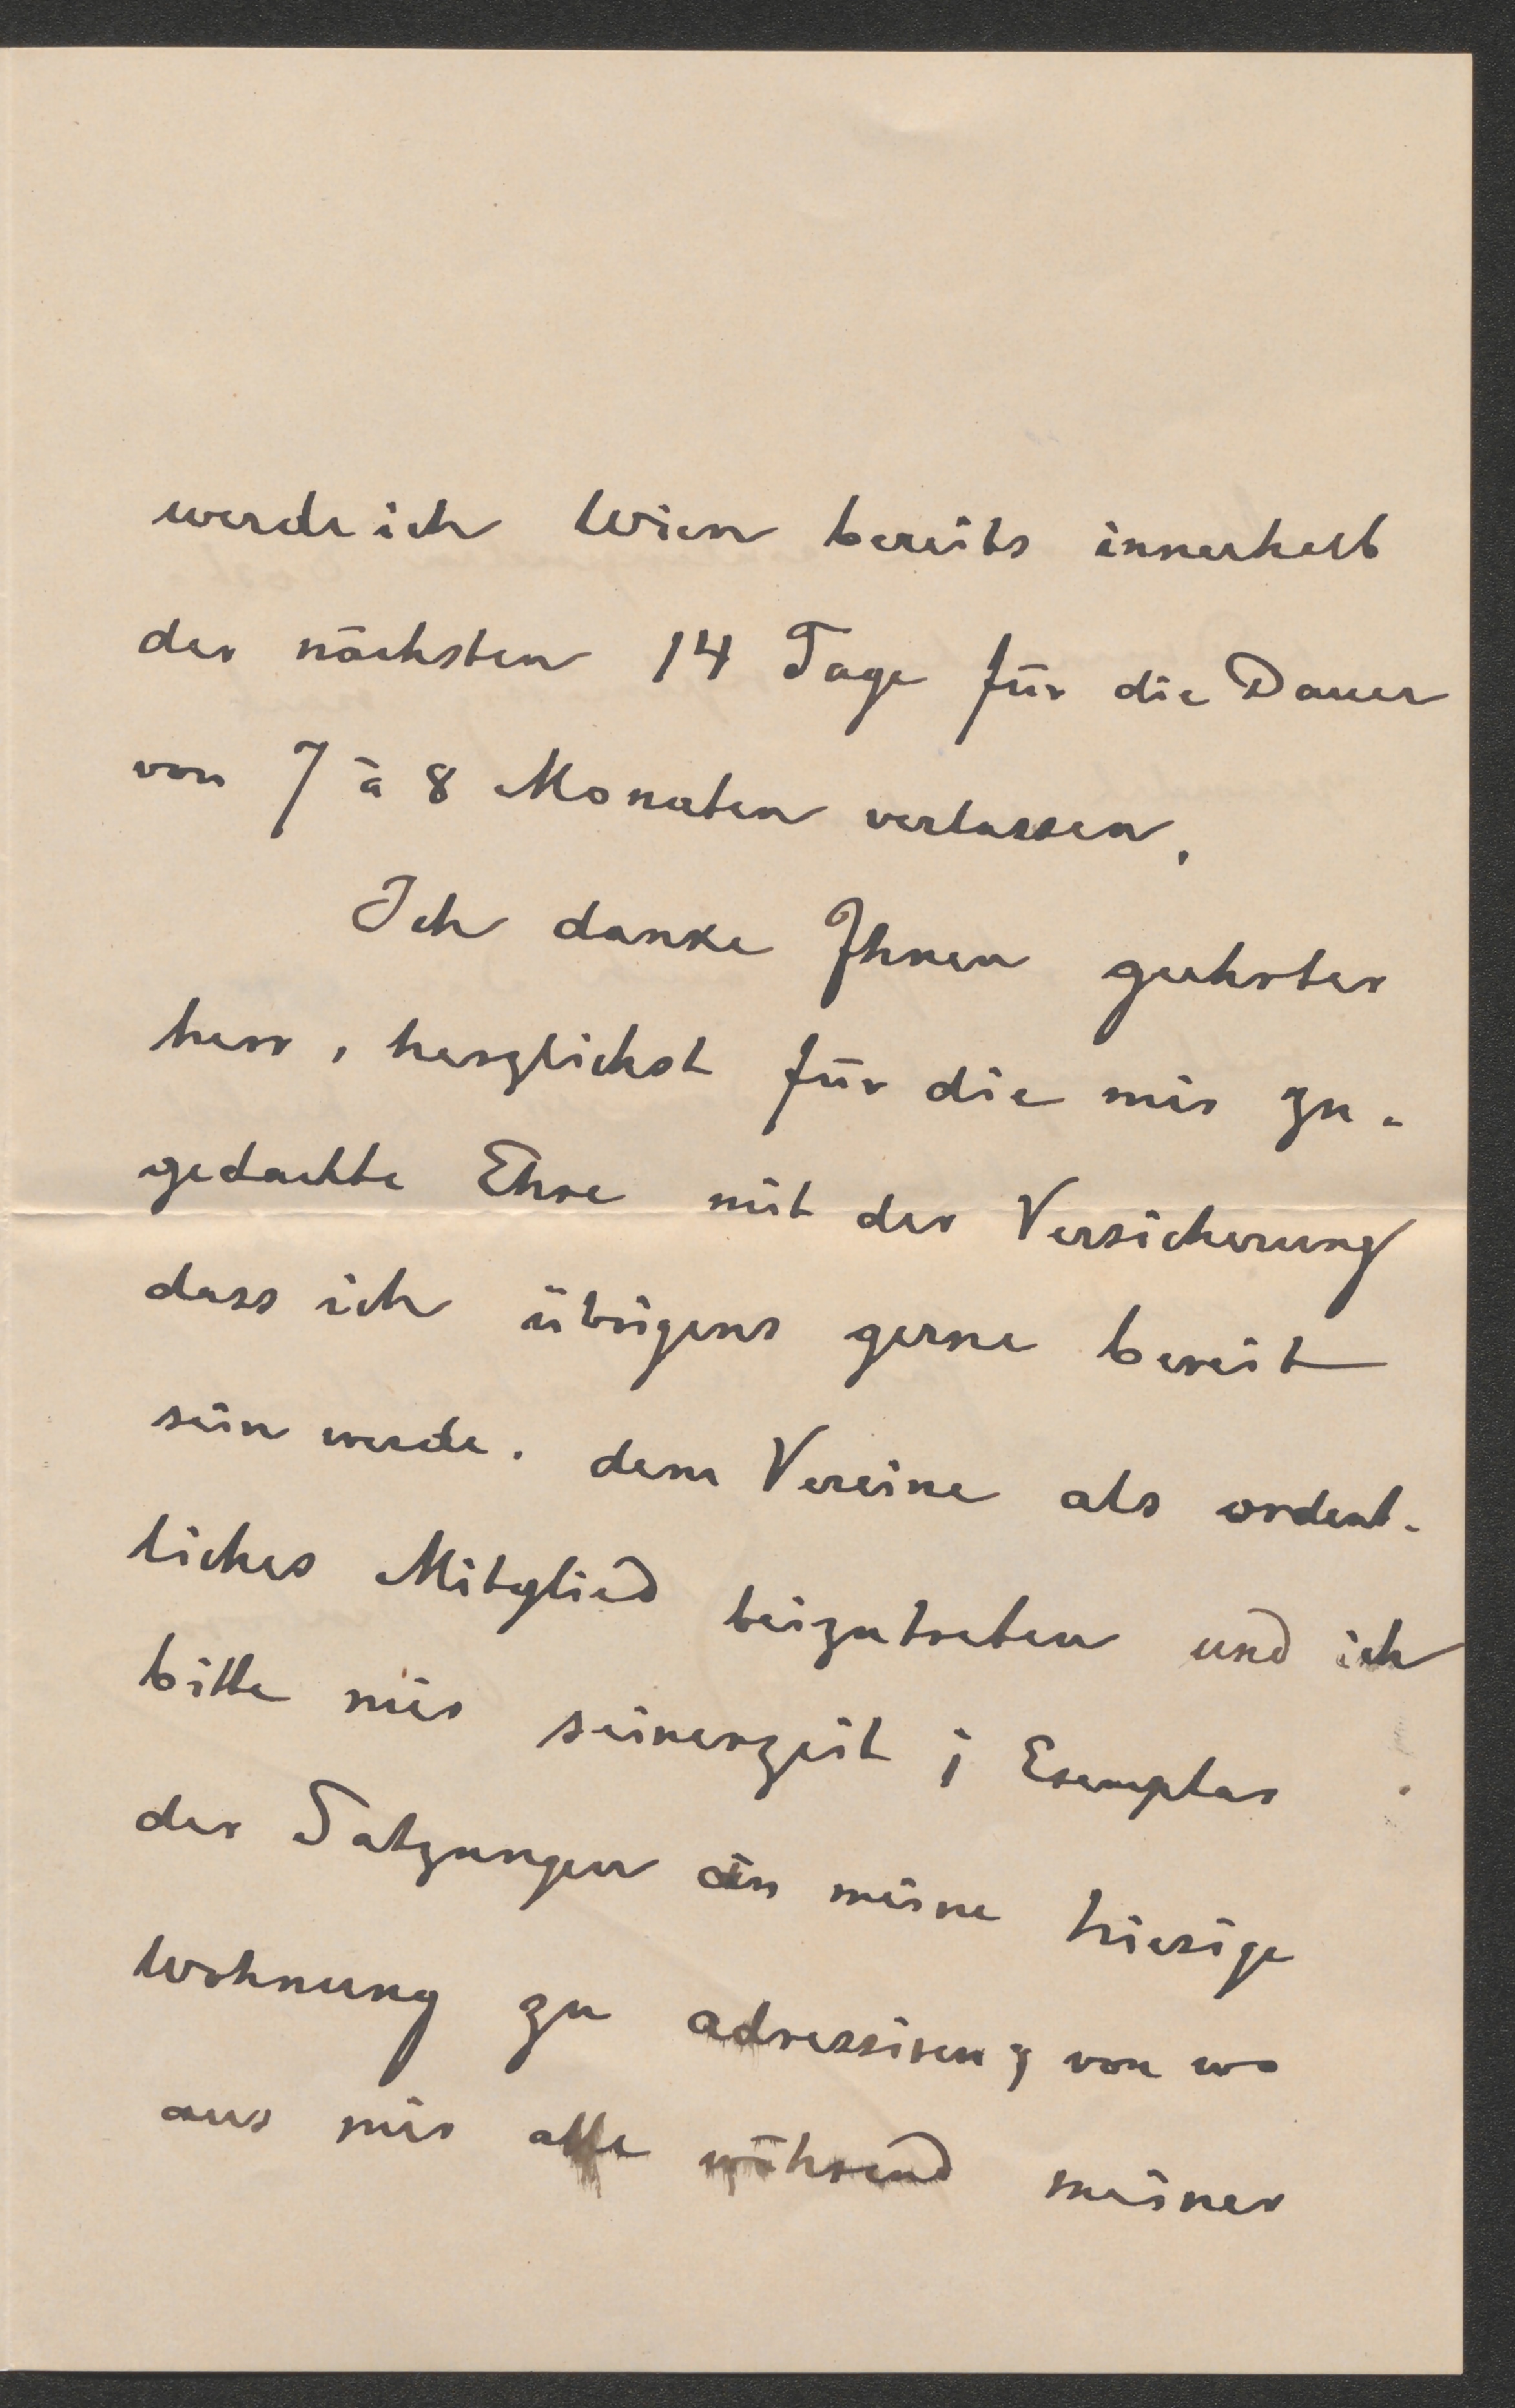 werde ich Wien bereits innerhalb
der nächsten 14 Tage für die Dauer
von 7 à 8 Monaten verlassen.
Ich danke Ihnen geehrter
herr, herzlichst für die mir zu-
gedachte Ehre mit der Versicherung
dass ich übrigens gerne bereit
sein werde. dem Vereine als ordent-
liches Mitglied beizutreten und ich
bitte mir seinerzeit 1 Exemplar
der Satzungen an meine hiesige
Wohnung zu adressiren; von wo
aus mir alle während meiner